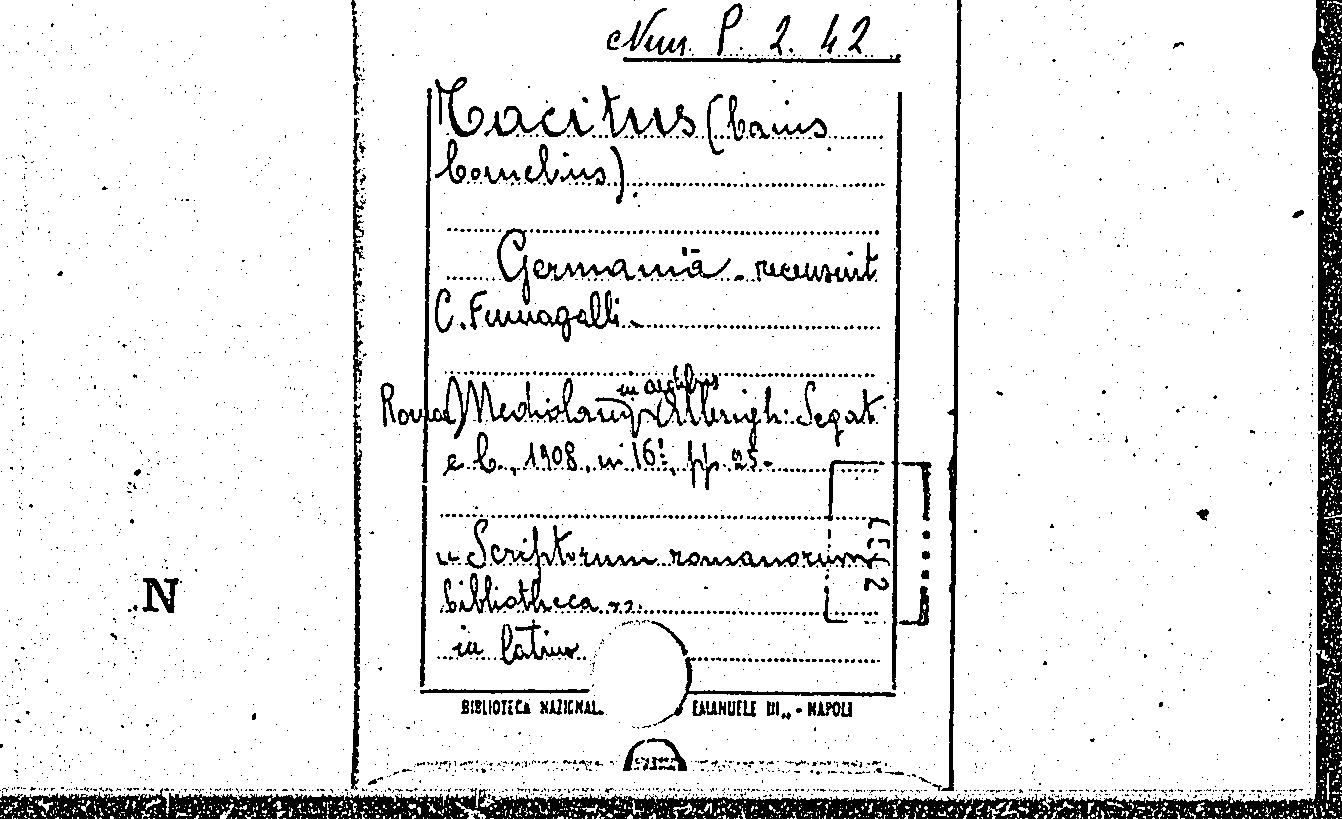 Num. P. 2. 42
Tacitus (Caius
Cornelius).
Germania. recensuit
C. Fumagalli.
in aedibus
Romae) Mediolani, Albrigh: Segat
e C., 1908, in 16º, pp. 25.
« Scriptorum romanorum
bibliotheca ».
in latino
N
BIBLIOTECA NAZIONAL EMANUELE III - NAPOLI